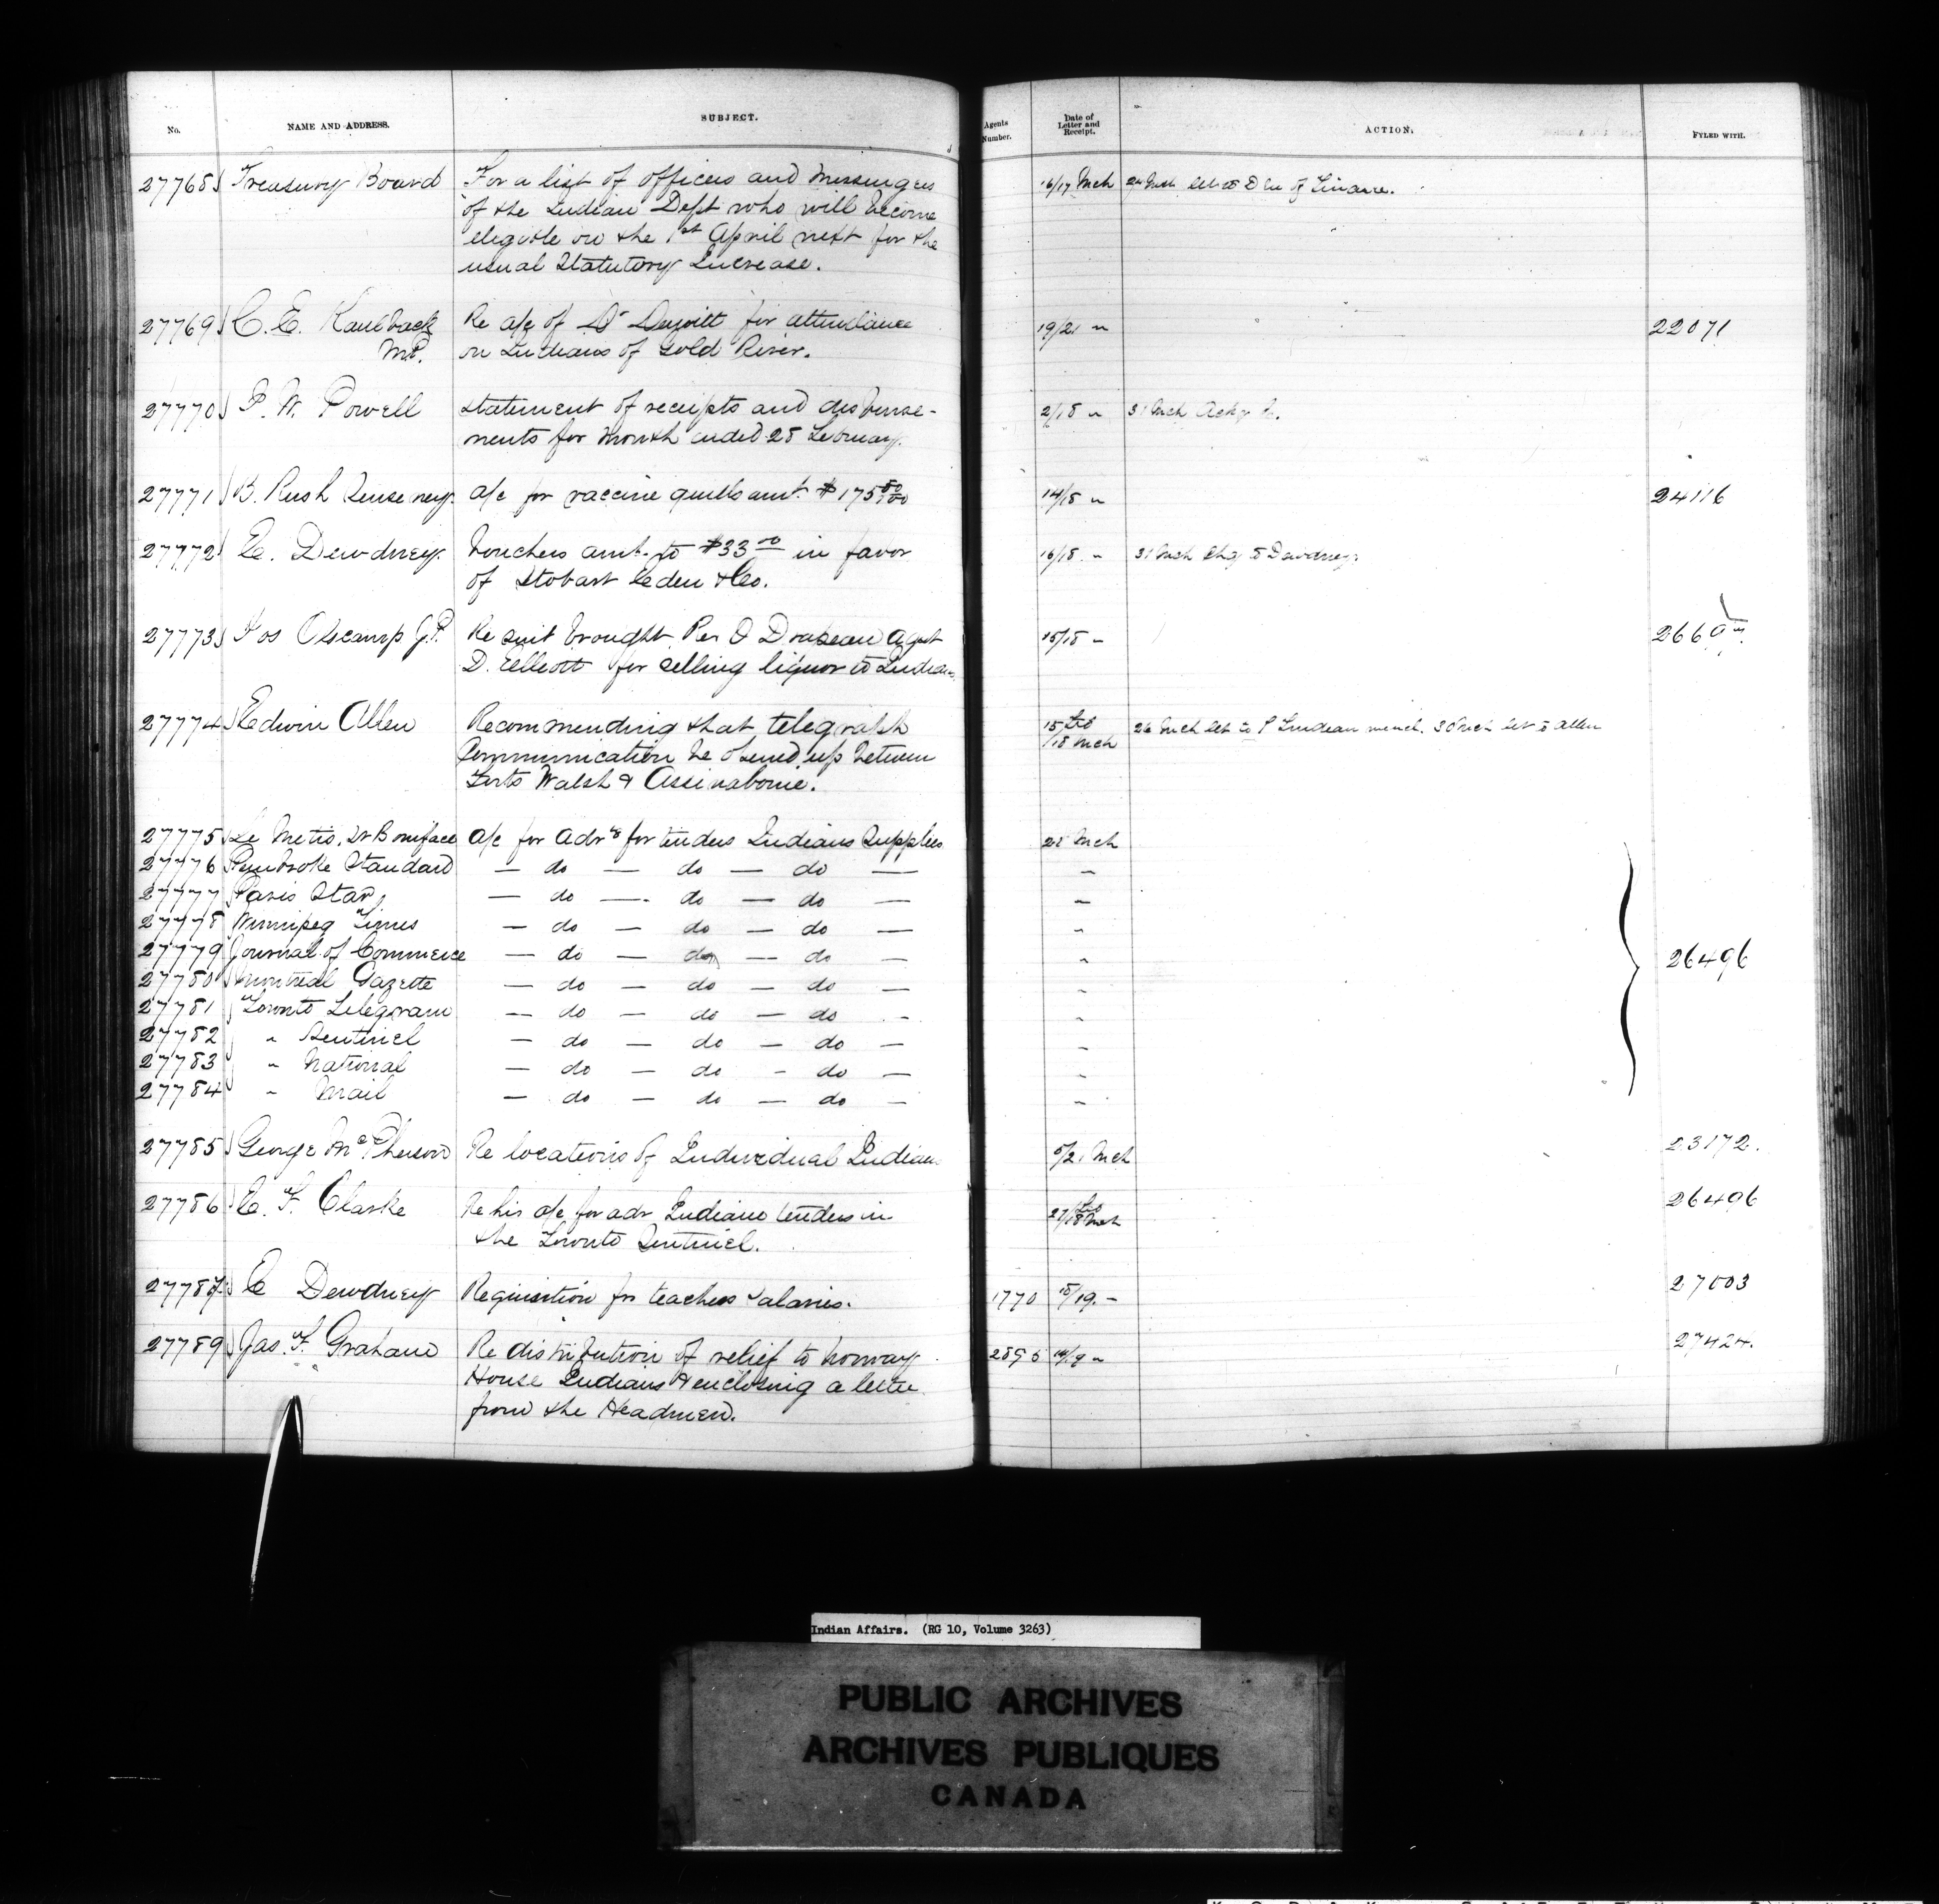 No. NAME AND ADDRESS. SUBJECT. Agents Number. Date of Letter and Receipt. ACTION. FYLED WITH.
27768 Treasury Board For a list of officers and messengers 16/17 Mch 24 Mch let to D M of Finance.
of the Indian Dept who will become
eligible on the 1st April next for the
usual Statutory Increase.
27769 C. E. Kaulback Re a/c of Dr for attendance 19/21 " 22071
M.P. on Indians of Gold River.
27770 I. W. Powell Statement of receipts and disburse- 2/18 " 31 Mch
ments for month ended 28 February.
27771 B. Rush Senseney a/c for vaccine quills amt. $175 50/100 14/18 " 24116
27772 E. Dewdney Vouchers amt. to $33 00 in favor 16/18 " 31 Mch to Dewdney.
of Stobart Eden & Co.
27773 Jos Oscamp J.P. Re suit brought Per O Drapeau Agst 15/18 "
D. Ellcott for selling liquor to Indians
27774 Edwin Allen Recommending that telegraph 15 Feb 26 Mch let to 30 Mch let to Allen
Communication be opened up between /18 Mch
Forts Walsh & Assinaboine.
27775 Le Metis, St Boniface a/c for advts for tenders Indians Supplies 21 Mch
27776 Pembroke Standard — do — do — do — "
27777 Paris Star, — do — do — do — "
27778 Winnipeg Times — do — do — do — "
27779 Journal of Commerce — do — do — do — " 26496
27780 Montreal Gazette — do — do — do — "
27781 Toronto Telegram — do — do — do — "
27782 " Sentinel — do — do — do — "
27783 " National — do — do — do — "
27784 " Mail — do — do — do — "
27785 George McPherson Re locations of Individual Indians 5/21 Mch 23172.
27786 E. F. Clarke Re his a/c for adv Indians tenders in 27 Feb /18 Mch 26496
the Toronto Sentinel.
27787 E Dewdney Requisition for teachers salaries. 1770 15/19. " 27003
27789 Jas. F. Graham Re distribution of relief to Norway 27424.
House Indians & enclosing a letter
from the Headmen.
Indian Affairs. (RG 10, Volume 3263)
PUBLIC ARCHIVES
ARCHIVES PUBLIQUES
CANADA